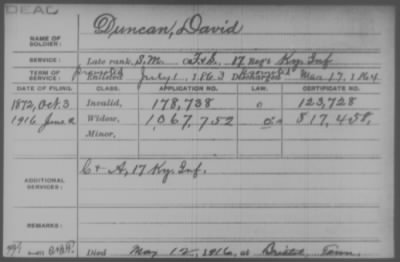 DEAD
NAME OF SOLDIER: Duncan, David
SERVICE: Late rank, S.M. Co. F&S., 17 Reg't Ky. Inf.
TERM OF SERVICE: promoted Enlisted July 1, 1863 Discharged Mar 17, 1864
DATE OF FILING. CLASS. APPLICATION NO. LAW. CERTIFICATE NO.
1872, Oct. 3 Invalid, 178,738 123,728
1916, June Widow, 1,067,752 817,458.
Minor,
ADDITIONAL SERVICES: C & A, 17 Ky. Inf.
REMARKS:
Died May 12, 1916, at Bristol Tenn.